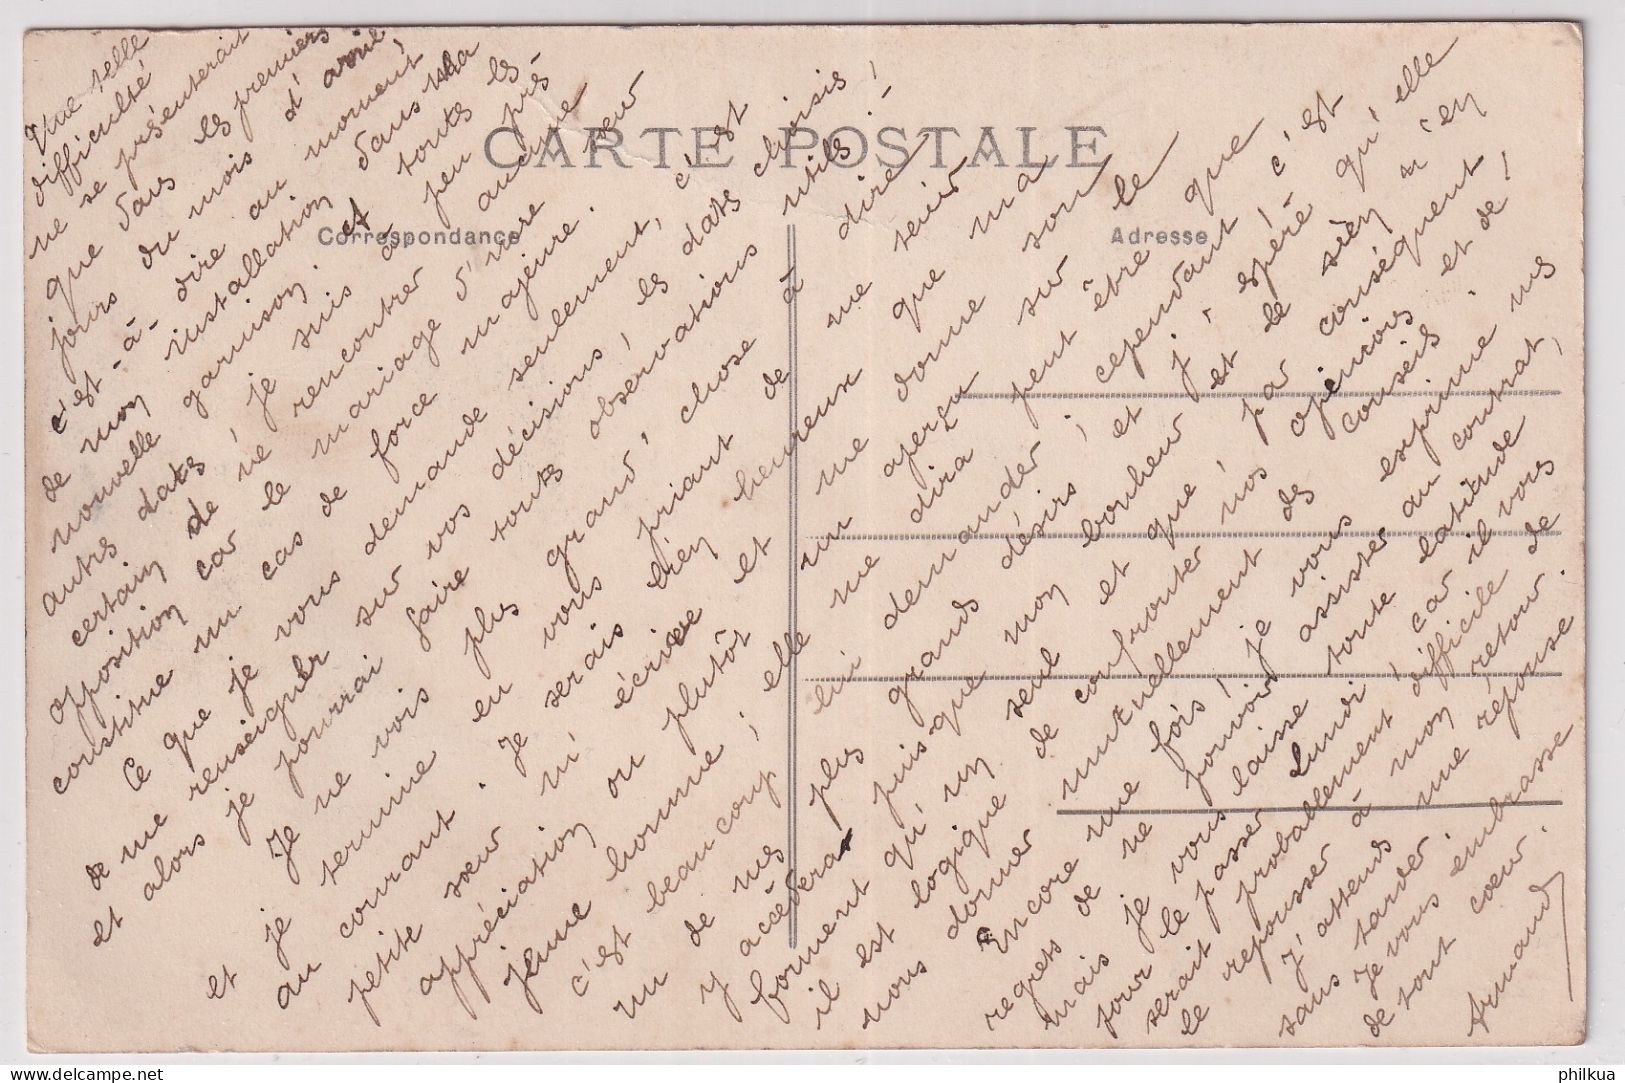 CARTE POSTALE
Correspondance
Adresse
Une telle
difficulté
ne se présenterait
que dans les premiers
jours du mois d'avril,
c'est-à-dire au moment
de mon installation dans ma
nouvelle garnison. Et toutes les
autres dates je suis à peu près
certain de ne rencontrer aucune
opposition car le mariage d'une sœur
constitue un cas de force majeure.
Ce que je vous demande seulement, c'est
de me renseigner sur vos décisions, les dates choisies,
et alors je pourrai faire toutes observations utiles.
Je ne vois plus grand'chose à dire
et je termine en vous priant de me tenir
au courant. Je serais bien heureux que ma
petite sœur m'écrive et me donne son
appréciation ou plutôt un aperçu sur le
jeune homme; elle me dira peut être que
c'est beaucoup lui demander, cependant c'est
un de mes plus grands désirs et j'espère qu'elle
y accèdera puisque mon bonheur et le sien n'en
forment qu'un seul et que par conséquent
il est logique de confronter nos opinions et de
nous donner mutuellement des conseils.
Encore une fois, je vous exprime mes
regrets de ne pouvoir assister au contrat,
mais je vous laisse toute latitude
pour le passer Lundi, car il vous
serait probablement difficile de
le repousser à mon retour.
J'attends une réponse
sans tarder
Je vous embrasse
de tout cœur.
Armand
philkua